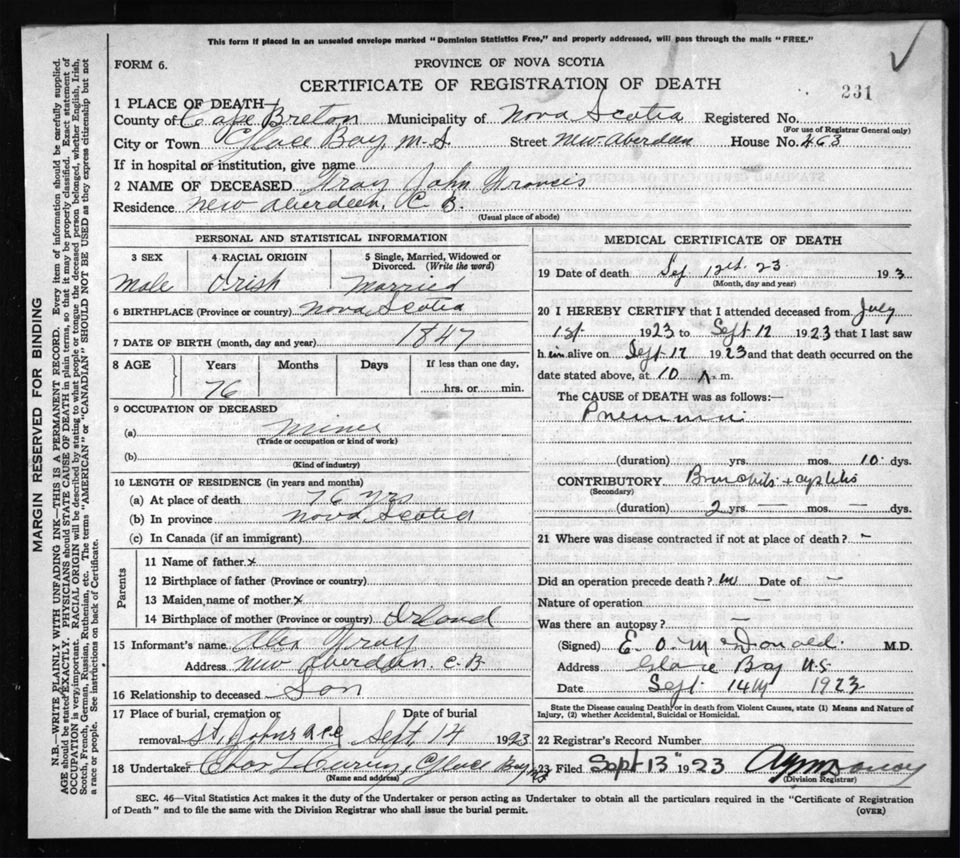 This form if placed in an unsealed envelope marked "Dominion Statistics Free," and properly addressed, will pass through the mails "FREE."
FORM 6.
PROVINCE OF NOVA SCOTIA
CERTIFICATE OF REGISTRATION OF DEATH
231
1 PLACE OF DEATH
County of Cape Breton Municipality of Nova Scotia Registered No.
(For use of Registrar General only)
City or Town Glace Bay, N.S. Street New Aberdeen House No. 463
If in hospital or institution, give name
2 NAME OF DECEASED John Francis
Residence New Aberdeen, C B.
(Usual place of abode)
PERSONAL AND STATISTICAL INFORMATION
3 SEX 4 RACIAL ORIGIN 5 Single, Married, Widowed or Divorced. (Write the word)
Male Irish Married
6 BIRTHPLACE (Province or country) Nova Scotia
7 DATE OF BIRTH (month, day and year) 1847
8 AGE Years Months Days If less than one day,
76 hrs. or min.
9 OCCUPATION OF DECEASED
(a) Miner
(Trade or occupation or kind of work)
(b)
(Kind of industry)
10 LENGTH OF RESIDENCE (in years and months)
(a) At place of death 76 yrs
(b) In province Nova Scotia
(c) In Canada (if an immigrant)
Parents
11 Name of father x
12 Birthplace of father (Province or country)
13 Maiden name of mother x
14 Birthplace of mother (Province or country) Irland
15 Informant's name Alex
Address New Aberdeen C.B.
16 Relationship to deceased Son
17 Place of burial, cremation or Date of burial
removal St. Johns Sept. 14 1923
18 Undertaker Chas L Curry, Glace Bay NS
(Name and address)
MEDICAL CERTIFICATE OF DEATH
19 Date of death Sep 12th. 23 193
(Month, day and year)
20 I HEREBY CERTIFY that I attended deceased from July
1st 1923 to Sept 12 1923 that I last saw
h im alive on Sept 12 1923 and that death occurred on the
date stated above, at 10 A m.
The CAUSE of DEATH was as follows:—
Pneumonia
(duration) yrs. mos. 10 dys.
CONTRIBUTORY Bronchitis + cystitis
(Secondary)
(duration) 2 yrs. — mos. — dys.
21 Where was disease contracted if not at place of death? -
Did an operation precede death? no Date of —
Nature of operation —
Was there an autopsy? —
(Signed) E. O. McDonald. M.D.
Address Glace Bay N.S.
Date Sept 14th 1923
State the Disease causing Death, or in death from Violent Causes, state (1) Means and Nature of
Injury, (2) whether Accidental, Suicidal or Homicidal.
22 Registrar's Record Number
23 Filed Sept 13" 1923
(Division Registrar)
SEC. 46—Vital Statistics Act makes it the duty of the Undertaker or person acting as Undertaker to obtain all the particulars required in the "Certificate of Registration
of Death" and to file the same with the Division Registrar who shall issue the burial permit.
(OVER)
MARGIN RESERVED FOR BINDING
N.B.—WRITE PLAINLY WITH UNFADING INK—THIS IS A PERMANENT RECORD. Every item of information should be carefully supplied.
AGE should be stated EXACTLY. PHYSICIANS should STATE CAUSE OF DEATH in plain terms, so that it may be properly classified. Exact statement of
OCCUPATION is very important. RACIAL ORIGIN will be described by stating to what people or tongue the deceased person belonged, whether English, Irish,
Scotch, French, German, Russian, Ruthenian, etc. The terms "AMERICAN" or "CANADIAN" SHOULD NOT BE USED as they express citizenship but not
a race or people. See instructions on back of Certificate.